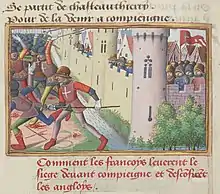 Se partit de chasteauthierry
Pour de la Venir a compieugne.
Comment les francois leuerent le
siege deuant compieigne et desconfire
les anglois.